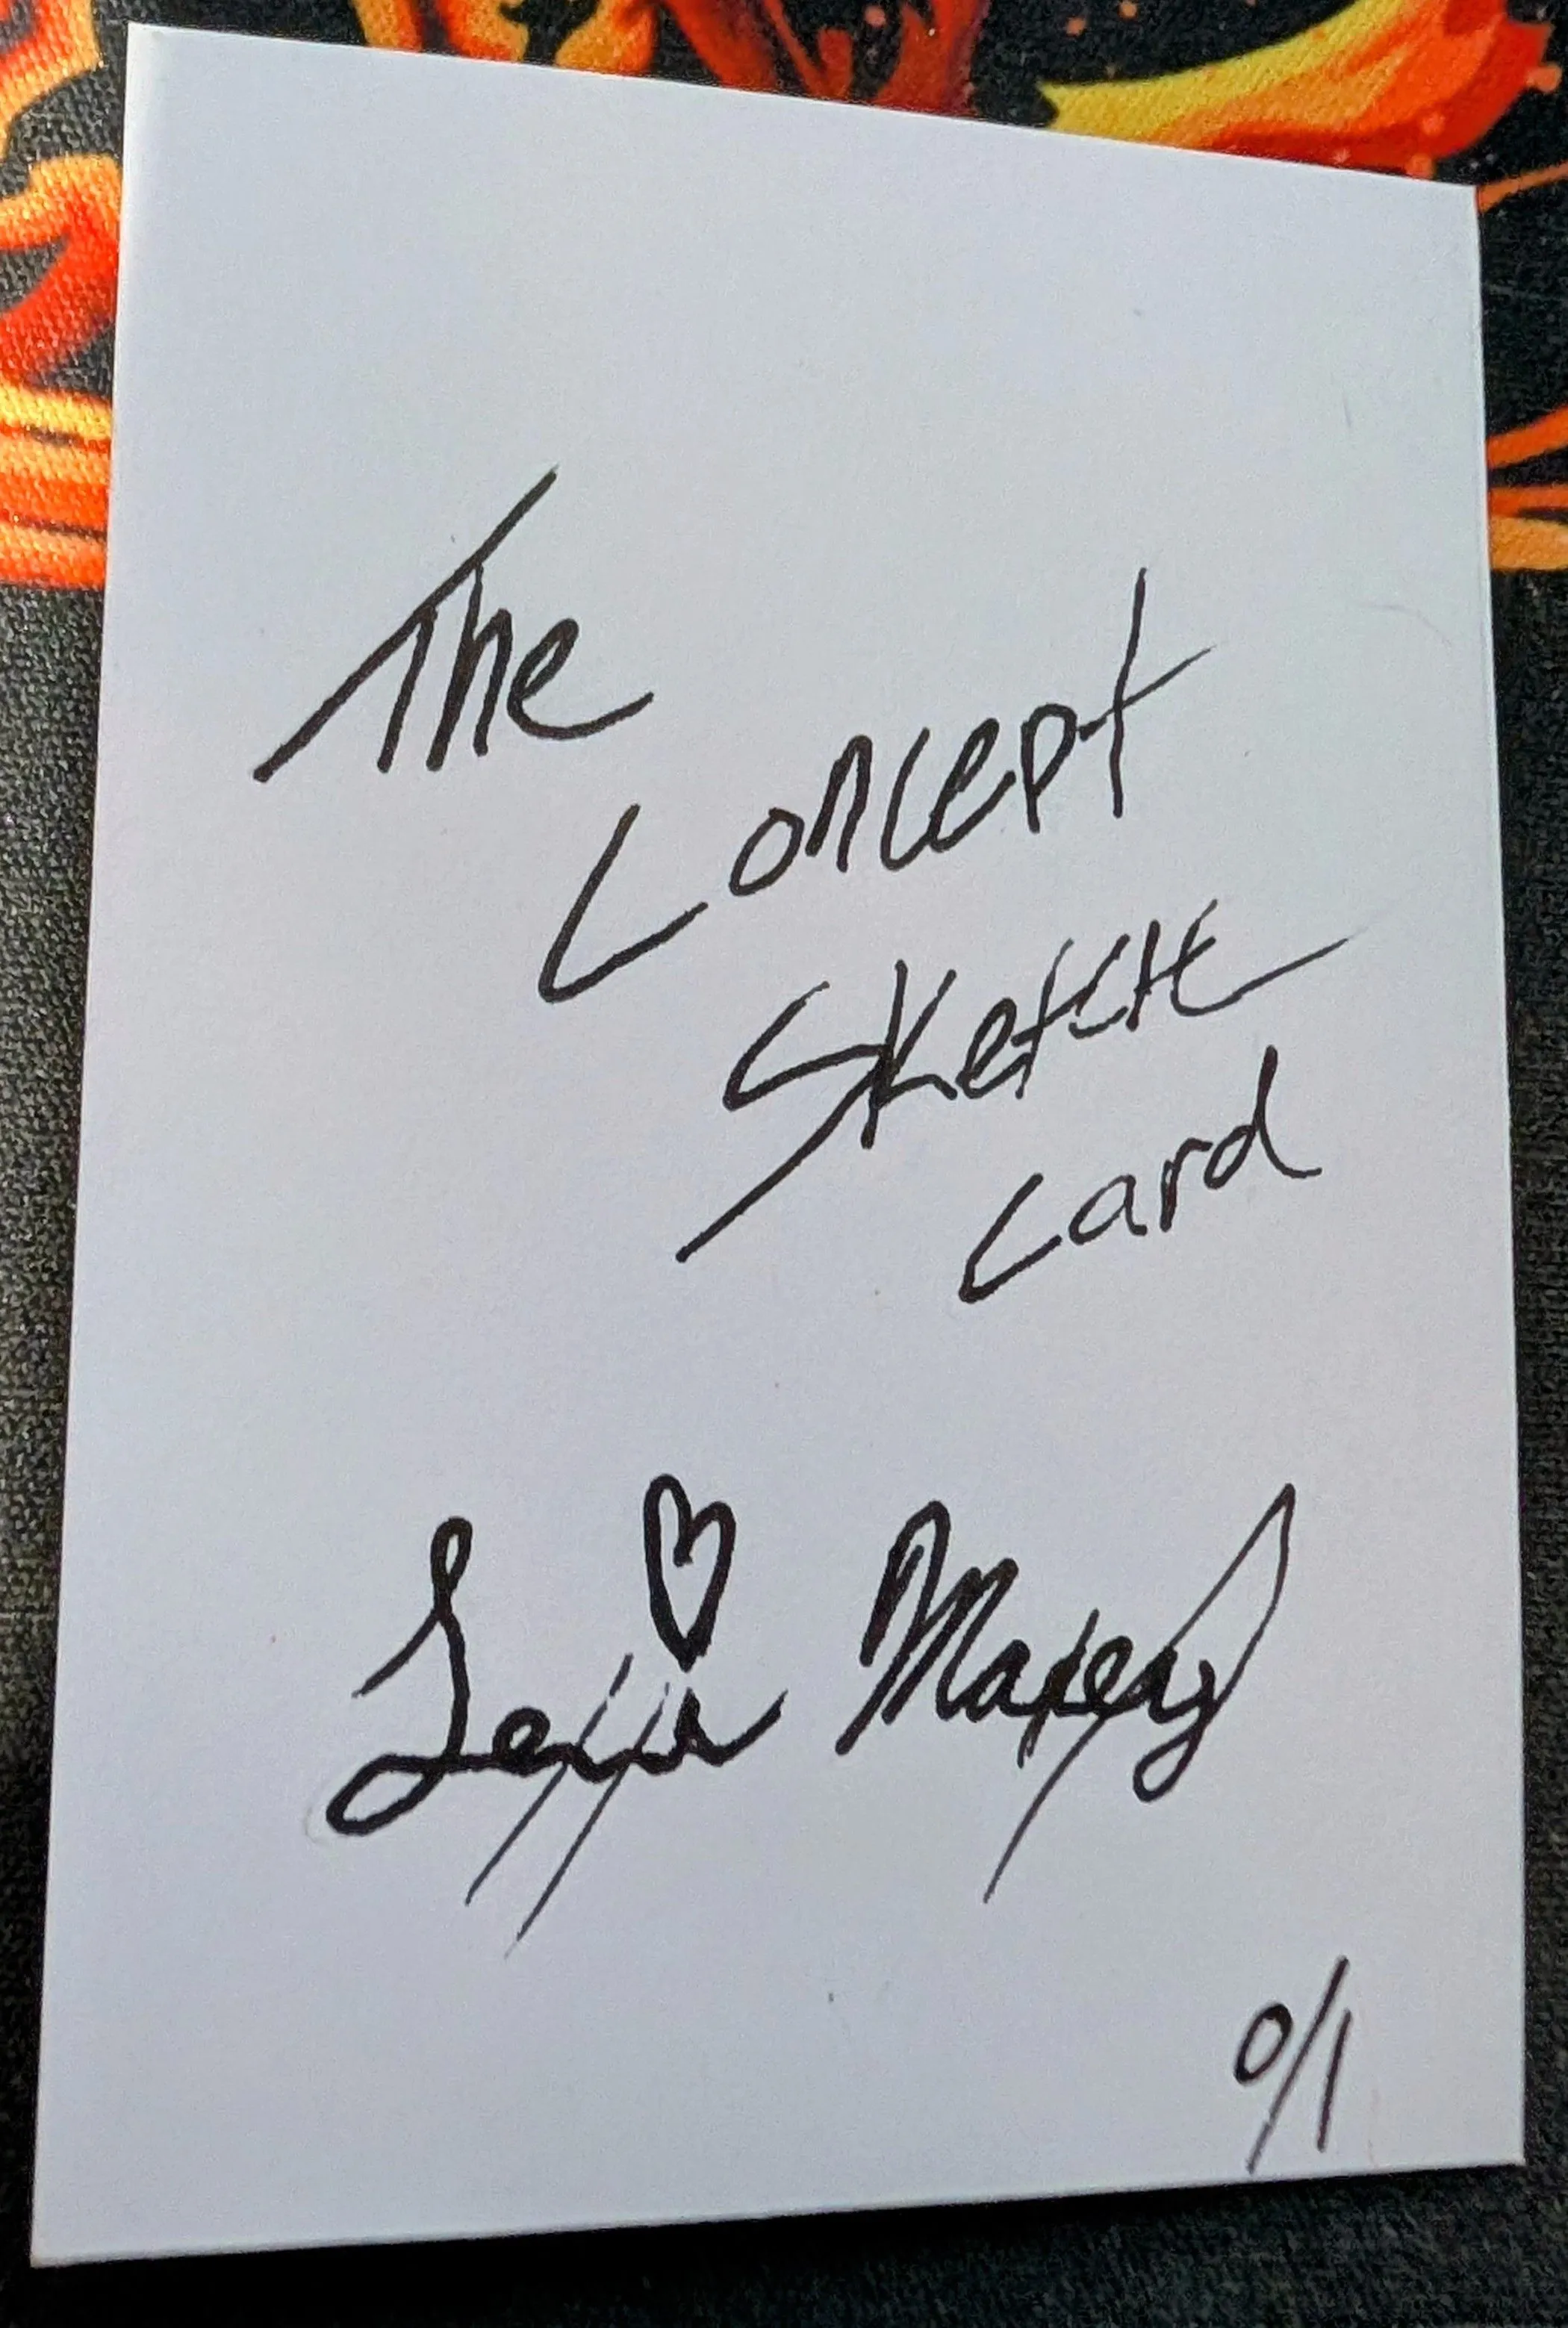 The
Concept
Sketch
Card
Maxey
0/1